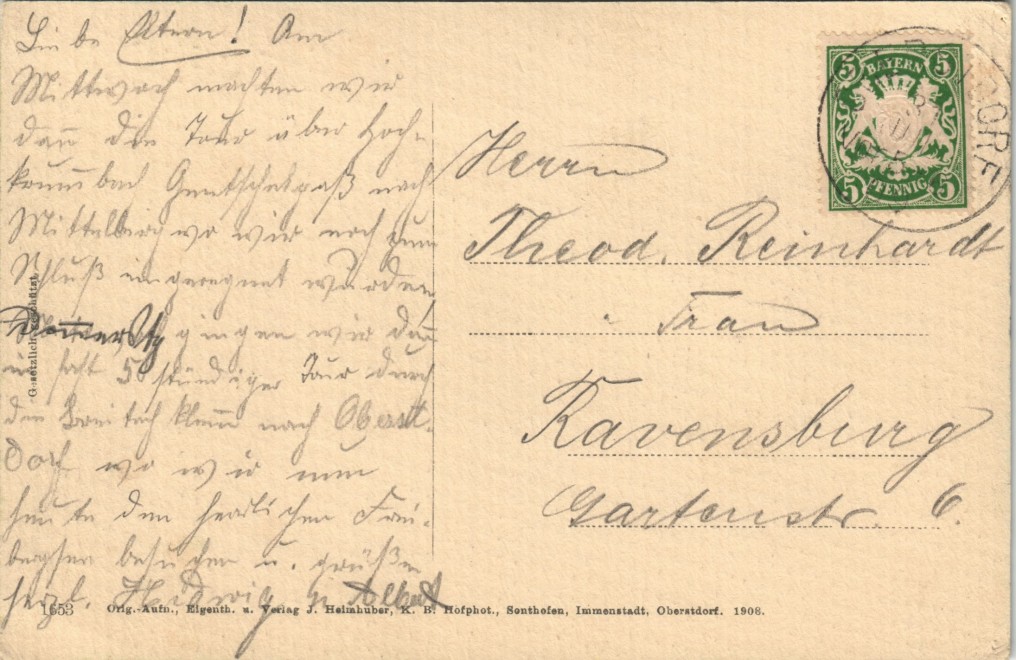 Liebe Eltern! Am
Mittwoch machten wir
dann die Tour über Hoch-
krumbach Gentschelpaß nach
Mittelberg wo wir noch zum
Schluß eingeregnet wurden
Donnerstg gingen wir dann
in fast 5 stündiger Tour durch
den Breitachklamm nach Oberst-
dorf wo wir nun
heute den herrlichen Frei-
bergsee besuchen u. grüßen
herzl. Hedwig u Albert
Gesetzlich geschützt.
BAYERN
5 5
5 5
PFENNIG
DORF
Herrn
Theod. Reinhardt
Frau
Ravensburg
Gartenstr. 6.
1653 Orig.-Aufn., Eigenth. u. Verlag J. Heimhuber, K. B. Hofphot., Sonthofen, Immenstadt, Oberstdorf. 1908.